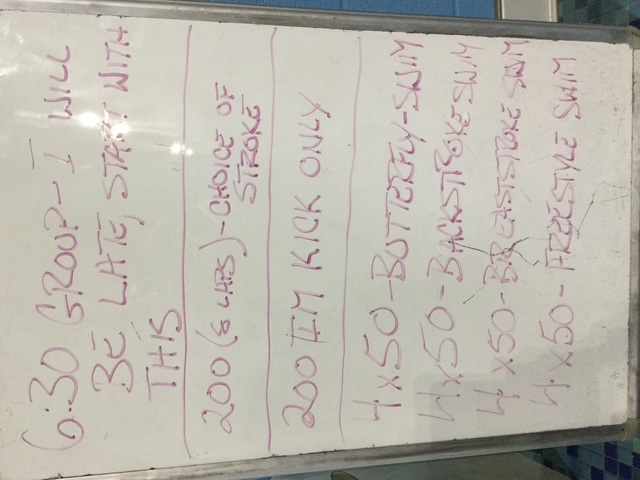 6:30 GROUP- I WILL
BE LATE, START WITH
THIS
200 (8 LAPS)-CHOICE OF
STROKE
200 IM KICK ONLY
4x50-BUTTERFLY-SWIM
4x50-BACKSTROKE SWIM
4x50-BREASTSTROKE SWIM
4x50- FREESTYLE SWIM